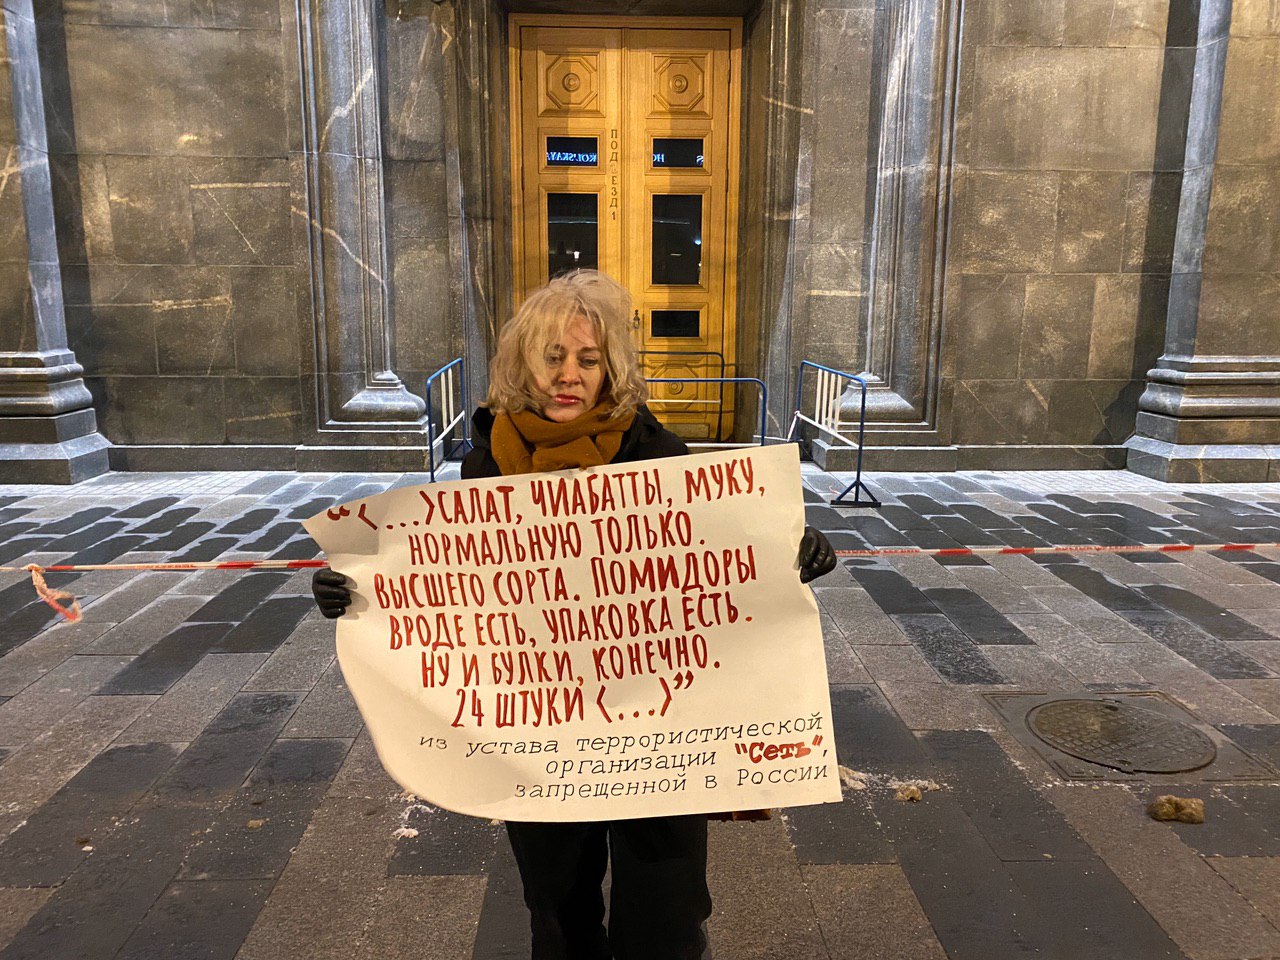 ПОДЪЕЗД 1
"<...>САЛАТ, ЧИАБАТТЫ, МУКУ,
НОРМАЛЬНУЮ ТОЛЬКО.
ВЫСШЕГО СОРТА. ПОМИДОРЫ
ВРОДЕ ЕСТЬ, УПАКОВКА ЕСТЬ.
НУ И БУЛКИ, КОНЕЧНО.
24 ШТУКИ <...>"
из устава террористической
организации "Сеть",
запрещенной в России